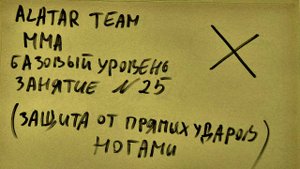 ALATAR TEAM
MMA
БАЗОВЫЙ УРОВЕНЬ
ЗАНЯТИЕ №25
(ЗАЩИТА ОТ ПРЯМИХ УДАРОВ
НОГАМИ)